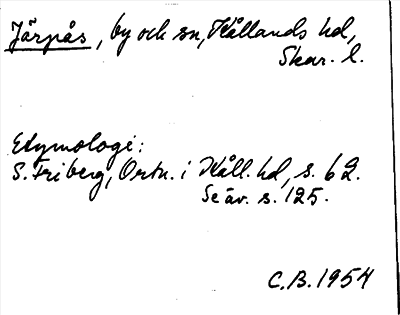 Järpås, by och sn, Kållands hd,
Skar. l.
Etymologi:
S. Friberg, Ortn. i Kåll. hd, s. 62.
Se äv. s. 125.
C.B. 1954